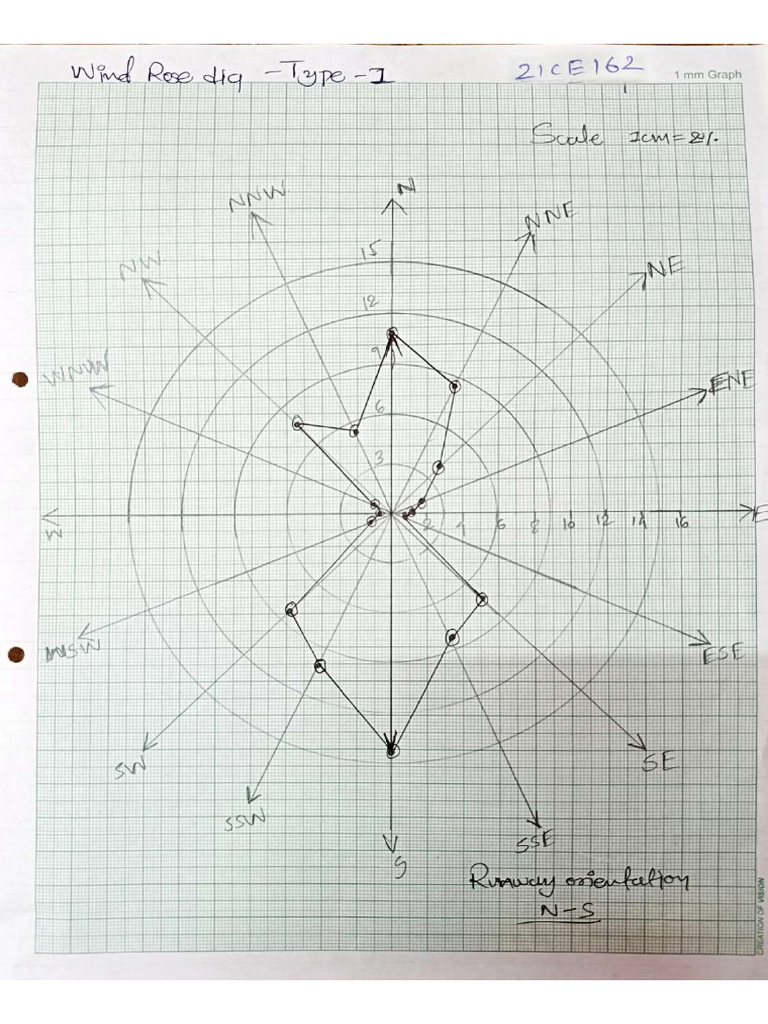 Wind Rose dig - Type - 1
21CE162
1 mm Graph
Scale 1cm = 2%
N
NNW
NNE
NW
NE
15
12
WNW
ENE
9
6
3
W
2 4 6 8 10 12 14 16
E
WSW
ESE
SW
SE
SSW
SSE
S
Runway orientation
N-S
CREATION OF VISION